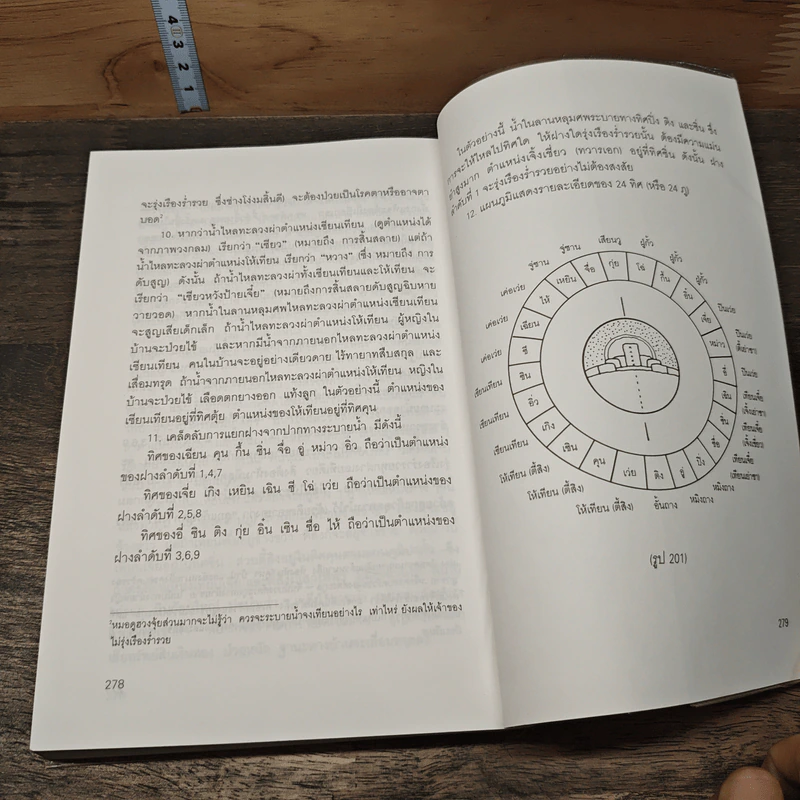 4
3
2
1
จะรุ่งเรืองร่ำรวย ซึ่งช่างโง่งมสิ้นดี) จะต้องป่วยเป็นโรคตาหรืออาจตา
บอด²
10. หากว่าน้ำไหลทะลวงผ่าตำแหน่งเซียนเทียน (ดูตำแหน่งได้
จากภาพวงกลม) เรียกว่า "เซียว" (หมายถึง การสิ้นสลาย) แต่ถ้า
น้ำไหลทะลวงผ่าตำแหน่งโห้เทียน เรียกว่า "หวาง" (ซึ่ง หมายถึง การ
ดับสูญ) ดังนั้น ถ้าน้ำไหลทะลวงผ่าทั้งเซียนเทียนและโห้เทียน จะ
เรียกว่า "เซียวหวังป้ายเจี๋ย" (หมายถึงการสิ้นสลายดับสูญฉิบหาย
วายวอด) หากน้ำในลานหลุมศพไหลทะลวงผ่าตำแหน่งเซียนเทียน
จะสูญเสียเด็กเล็ก ถ้าน้ำไหลทะลวงผ่าตำแหน่งโห้เทียน ผู้หญิงใน
บ้านจะป่วยไข้ และหากมีน้ำจากภายนอกไหลทะลวงผ่าตำแหน่ง
เซียนเทียน คนในบ้านจะอยู่อย่างเดียวดาย ไร้ทายาทสืบสกุล และ
เสื่อมทรุด ถ้าน้ำจากภายนอกไหลทะลวงผ่าตำแหน่งโห้เทียน หญิงใน
บ้านจะป่วยไข้ เลือดตกยางออก แท้งลูก ในตัวอย่างนี้ ตำแหน่งของ
เซียนเทียนอยู่ที่ทิศตุ้ย ตำแหน่งของโห้เทียนอยู่ที่ทิศคุน
11. เคล็ดลับการแยกฝางจากปากทางระบายน้ำ มีดังนี้
ทิศของเฉียน คุน กึ้น ซิน จื่อ อู่ หม่าว อิ่ว ถือว่าเป็นตำแหน่ง
ของฝางลำดับที่ 1,4,7
ทิศของเจี่ย เกิง เหยิน เฉิน ซี โฉ่ เว่ย ถือว่าเป็นตำแหน่งของ
ฝางลำดับที่ 2,5,8
ทิศของอี่ ซิน ติง กุ่ย อิ๋น เซิน ซื่อ ไห้ ถือว่าเป็นตำแหน่งของ
ฝางลำดับที่ 3,6,9
²หมอดูฮวงจุ้ยส่วนมากจะไม่รู้ว่า ควรจะระบายน้ำจงเทียนอย่างไร เท่าใหร่ ยังผลให้เจ้าของ
ไม่รุ่งเรืองร่ำรวย
278
ในตัวอย่างนี้ น้ำในลานหลุมศพระบายทางทิศปิ่ง ติง และซิ่น ซึ่ง
การจะให้ไหลไปทิศใด ให้ฝางใดรุ่งเรืองร่ำรวยนั้น ต้องมีความแม่น
ยำสูงมาก ตำแหน่งเจิ้งเซี่ยว (ทวารเอก) อยู่ที่ทิศซิ่น ดังนั้น ฝาง
ลำดับที่ 1 จะรุ่งเรืองร่ำรวยอย่างไม่ต้องสงสัย
12. แผนภูมิแสดงรายละเอียดของ 24 ทิศ (หรือ 24 ภู)
ปู่ซาน
ปู่ซาน
เสียนวู
ผู่กั้ว
ผู่กั้ว
ผู่กั้ว
เค่อเว่ย
เค่อเว่ย
เค่อเว่ย
เซียนเทียน
เซียนเทียน
เซียนเทียน
โห้เทียน (ตี้สิง)
โห้เทียน (ตี้สิง)
โห้เทียน (ตี้สิง)
อั้นถาง
หมิงถาง
หมิงถาง
ไห้
เหยิน
จื่อ
กุ่ย
โฉ่
กึ้น
อิ๋น
เจี่ย
หม่าว
อี่
เฉิน
ซิ่น
ซื่อ
ปิ่ง
อู่
ติง
เว่ย
คุน
เซิน
เกิง
อิ่ว
ซิน
ซี
เฉียน
ปินเว่ย
ปินเว่ย
(รูป 201)
279